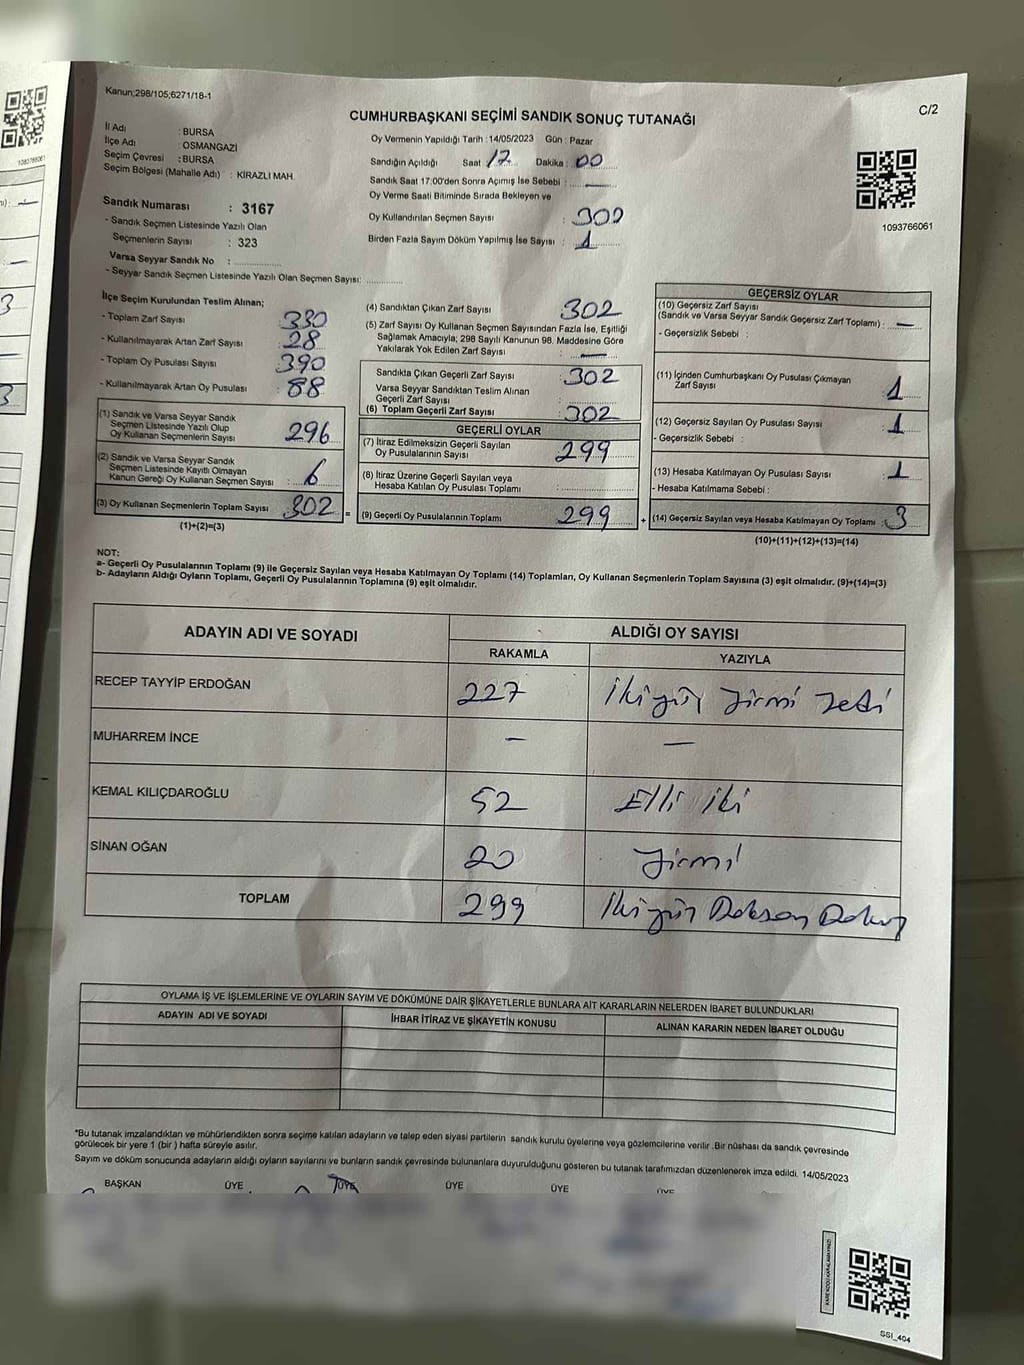 Kanun;298/105;6271/18-1
C/2
CUMHURBAŞKANI SEÇİMİ SANDIK SONUÇ TUTANAĞI
İl Adı : BURSA
İlçe Adı : OSMANGAZİ
Seçim Çevresi : BURSA
Seçim Bölgesi (Mahalle Adı) : KİRAZLI MAH.
Sandık Numarası : 3167
- Sandık Seçmen Listesinde Yazılı Olan
Seçmenlerin Sayısı : 323
Varsa Seyyar Sandık No :
- Seyyar Sandık Seçmen Listesinde Yazılı Olan Seçmen Sayısı:
Oy Vermenin Yapıldığı Tarih : 14/05/2023 Gün : Pazar
Sandığın Açıldığı Saat : 17 Dakika : 00
Sandık Saat 17:00'den Sonra Açımış İse Sebebi : —
Oy Verme Saati Bitiminde Sırada Bekleyen ve
Oy Kullandırılan Seçmen Sayısı : 302
Birden Fazla Sayım Döküm Yapılmış İse Sayısı : 1
1093766061
İlçe Seçim Kurulundan Teslim Alınan;
- Toplam Zarf Sayısı : 330
- Kullanılmayarak Artan Zarf Sayısı : 28
- Toplam Oy Pusulası Sayısı : 390
- Kullanılmayarak Artan Oy Pusulası : 88
(1) Sandık ve Varsa Seyyar Sandık
Seçmen Listesinde Yazılı Olup
Oy Kullanan Seçmenlerin Sayısı : 296
(2) Sandık ve Varsa Seyyar Sandık
Seçmen Listesinde Kayıtlı Olmayan
Kanun Gereği Oy Kullanan Seçmen Sayısı : 6
(3) Oy Kullanan Seçmenlerin Toplam Sayısı : 302
(1)+(2)=(3)
(4) Sandıktan Çıkan Zarf Sayısı : 302
(5) Zarf Sayısı Oy Kullanan Seçmen Sayısından Fazla İse, Eşitliği
Sağlamak Amacıyla; 298 Sayılı Kanunun 98. Maddesine Göre
Yakılarak Yok Edilen Zarf Sayısı : —
Sandıkta Çıkan Geçerli Zarf Sayısı : 302
Varsa Seyyar Sandıktan Teslim Alınan
Geçerli Zarf Sayısı :
(6) Toplam Geçerli Zarf Sayısı : 302
GEÇERLİ OYLAR
(7) İtiraz Edilmeksizin Geçerli Sayılan
Oy Pusulalarının Sayısı : 299
(8) İtiraz Üzerine Geçerli Sayılan veya
Hesaba Katılan Oy Pusulası Toplamı :
= (9) Geçerli Oy Pusulalarının Toplamı : 299 +
GEÇERSİZ OYLAR
(10) Geçersiz Zarf Sayısı
(Sandık ve Varsa Seyyar Sandık Geçersiz Zarf Toplamı) : —
- Geçersizlik Sebebi :
(11) İçinden Cumhurbaşkanı Oy Pusulası Çıkmayan
Zarf Sayısı : 1
(12) Geçersiz Sayılan Oy Pusulası Sayısı : 1
- Geçersizlik Sebebi :
(13) Hesaba Katılmayan Oy Pusulası Sayısı : 1
- Hesaba Katılmama Sebebi :
(14) Geçersiz Sayılan veya Hesaba Katılmayan Oy Toplamı : 3
(10)+(11)+(12)+(13)=(14)
NOT:
a- Geçerli Oy Pusulalarının Toplamı (9) ile Geçersiz Sayılan veya Hesaba Katılmayan Oy Toplamı (14) Toplamları, Oy Kullanan Seçmenlerin Toplam Sayısına (3) eşit olmalıdır. (9)+(14)=(3)
b- Adayların Aldığı Oyların Toplamı, Geçerli Oy Pusulalarının Toplamına (9) eşit olmalıdır.
ADAYIN ADI VE SOYADI ALDIĞI OY SAYISI
RAKAMLA YAZIYLA
RECEP TAYYİP ERDOĞAN 227 İkiyüz Yirmi Yedi
MUHARREM İNCE — —
KEMAL KILIÇDAROĞLU 52 Elli iki
SİNAN OĞAN 20 Yirmi
TOPLAM 299 İkiyüz Doksan Dokuz
OYLAMA İŞ VE İŞLEMLERİNE VE OYLARIN SAYIM VE DÖKÜMÜNE DAİR ŞİKAYETLERLE BUNLARA AİT KARARLARIN NELERDEN İBARET BULUNDUKLARI
ADAYIN ADI VE SOYADI İHBAR İTİRAZ VE ŞİKAYETİN KONUSU ALINAN KARARIN NEDEN İBARET OLDUĞU
*Bu tutanak imzalandıktan ve mühürlendikten sonra seçime katılan adayların ve talep eden siyasi partilerin sandık kurulu üyelerine veya gözlemcilerine verilir. Bir nüshası da sandık çevresinde
görülecek bir yere 1 (bir) hafta süreyle asılır.
Sayım ve döküm sonucunda adayların aldığı oyların sayılarını ve bunların sandık çevresinde bulunanlara duyurulduğunu gösteren bu tutanak tarafımızdan düzenlenerek imza edildi. 14/05/2023
BAŞKAN ÜYE ÜYE ÜYE ÜYE ÜYE
SSI_404